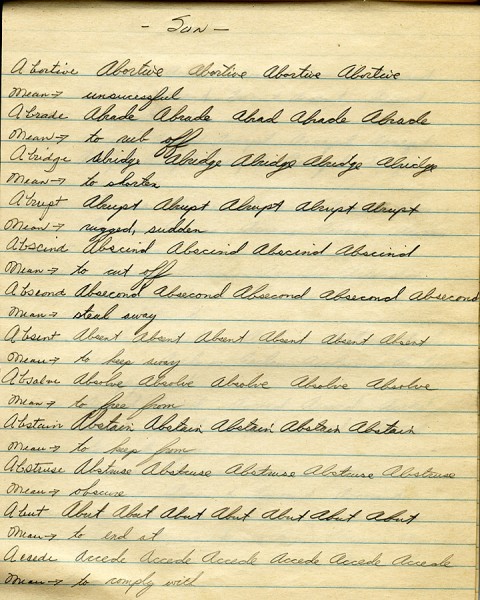 - Sun -
Abortive Abortive Abortive Abortive Abortive
Mean → unsucessful
Abrade Abrade Abrade Abrad Abrade Abrade
Mean → to rub off
Abridge Abridge Abridge Abridge Abridge Abridge
Mean → to shorten
Abrupt Abrupt Abrupt Abrupt Abrupt Abrupt
Mean → rugged, sudden
Abscind Abscind Abscind Abscind Abscind
Mean → to cut off
Abscond Absecond Absecond Absecond Absecond Absecond
Mean → steal away
Absent Absent Absent Absent Absent Absent Absent
Mean → to keep away
Absolve Absolve Absolve Absolve Absolve Absolve
Mean → to free from
Abstain Abstain Abstain Abstain Abstain Abstain
Mean → to keep from
Abstruse Abstruse Abstruse Abstruse Abstruse Abstruse
Mean → obscure
Abut Abut Abut Abut Abut Abut Abut Abut
Mean → to end at
Accede Accede Accede Accede Accede Accede Accede
Mean → to comply with